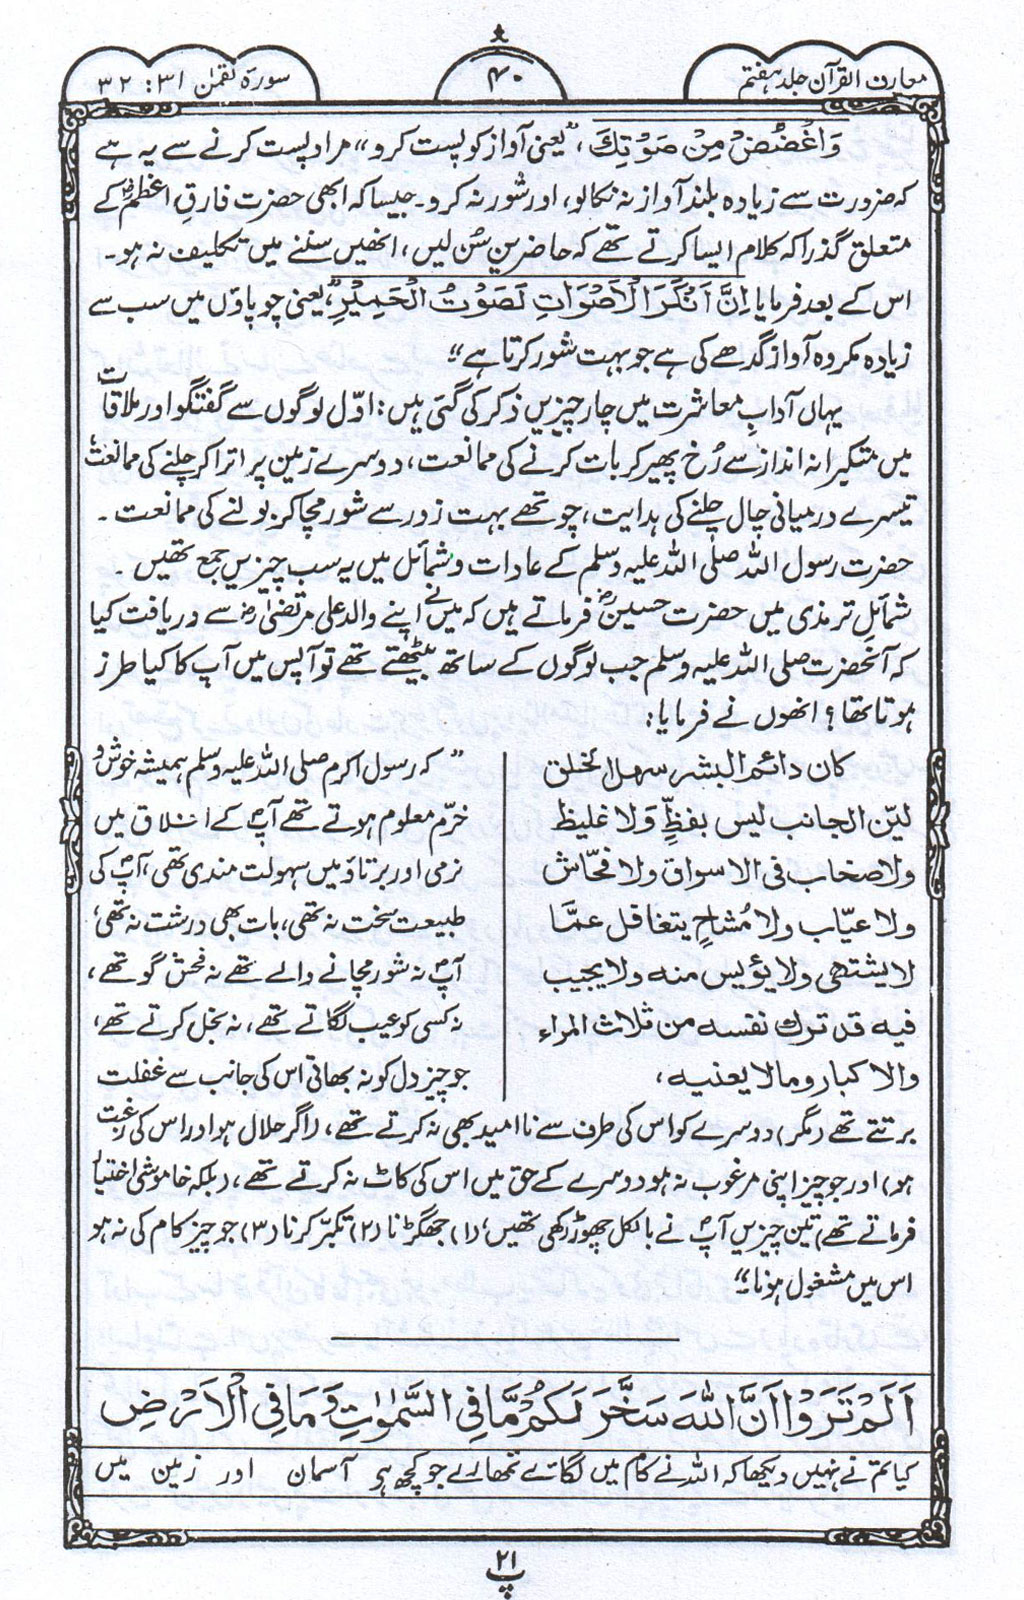 معارف القرآن جلد ہفتم
۴۰
سورۃ لقمٰن ۳۱: ۳۲
وَاغْضُضْ مِنْ صَوْتِكَ، “یعنی آواز کو پست کرو” مراد پست کرنے سے یہ ہے
کہ ضرورت سے زیادہ بلند آواز نہ نکالو، اور شور نہ کرو۔ جیسا کہ ابھی حضرت فاروقِ اعظمؓ کے
متعلق گذرا کہ کلام ایسا کرتے تھے کہ حاضرین سُن لیں، انھیں سننے میں تکلیف نہ ہو۔
اس کے بعد فرمایا اِنَّ اَنْكَرَ الْاَصْوَاتِ لَصَوْتُ الْحَمِيْرِ “یعنی چوپاؤں میں سب سے
زیادہ مکروہ آواز گدھے کی ہے جو بہت شور کرتا ہے”
یہاں آدابِ معاشرت میں چار چیزیں ذکر کی گئی ہیں: اوّل لوگوں سے گفتگو اور ملاقات
میں متکبرانہ انداز سے رُخ پھیر کر بات کرنے کی ممانعت، دوسرے زمین پر اترا کر چلنے کی ممانعت،
تیسرے درمیانی چال چلنے کی ہدایت، چوتھے بہت زور سے شور مچا کر بولنے کی ممانعت۔
حضرت رسول اللہ صلی اللہ علیہ وسلم کے عادات و شمائل میں یہ سب چیزیں جمع تھیں۔
شمائلِ ترمذی میں حضرت حسینؓ فرماتے ہیں کہ میں نے اپنے والد علی مرتضیٰؓ سے دریافت کیا
کہ آنحضرت صلی اللہ علیہ وسلم جب لوگوں کے ساتھ بیٹھتے تھے تو آپس میں آپ کا کیا طرز
ہوتا تھا؟ انھوں نے فرمایا:
كان دائم البشر سهل الخلق
ليّن الجانب ليس بفظٍّ ولا غليظ
ولا صخاب فى الاسواق ولا فحّاش
ولا عيّاب ولا مُشاحٍ يتغافل عمّا
لا يشتهى ولا يؤيس منه ولا يجيب
فيه قد ترك نفسه من ثلاث المراء
والاكبار وما لا يعنيه،
“کہ رسول اکرم صلی اللہ علیہ وسلم ہمیشہ خوش و
خرّم معلوم ہوتے تھے آپؐ کے اخلاق میں
نرمی اور برتاؤ میں سہولت مندی تھی، آپؐ کی
طبیعت سخت نہ تھی، بات بھی درشت نہ تھی،
آپؐ نہ شور مچانے والے تھے نہ فحش گو تھے،
نہ کسی کو عیب لگاتے تھے، نہ بخل کرتے تھے،
جو چیز دل کو نہ بھاتی اس کی جانب سے غفلت
برتتے تھے (مگر) دوسرے کو اس کی طرف سے ناامید بھی نہ کرتے تھے، (اگر حلال ہو اور اس کی رغبت
ہو) اور جو چیز اپنی مرغوب نہ ہو دوسرے کے حق میں اس کی کاٹ نہ کرتے تھے، (بلکہ خاموشی اختیار
فرماتے تھے) تین چیزیں آپؐ نے بالکل چھوڑ رکھی تھیں، (۱) جھگڑنا (۲) تکبّر کرنا (۳) جو چیز کام کی نہ ہو
اس میں مشغول ہونا۔”
اَلَمْ تَرَوْا اَنَّ اللّٰهَ سَخَّرَ لَكُمْ مَّا فِي السَّمٰوٰتِ وَمَا فِي الْاَرْضِ
کیا تم نے نہیں دیکھا کہ اللہ نے کام میں لگائے تمھارے جو کچھ ہی آسمان اور زمین میں
۲۱